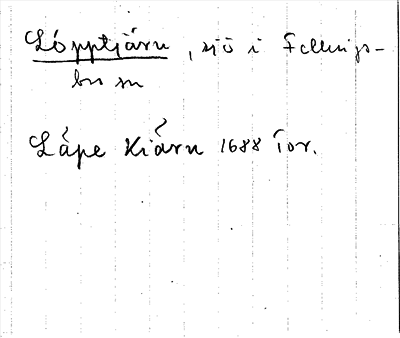 Lópptjärn, sjö i Fellings-
bro sn
Låpe Kiärn 1688 Tor.